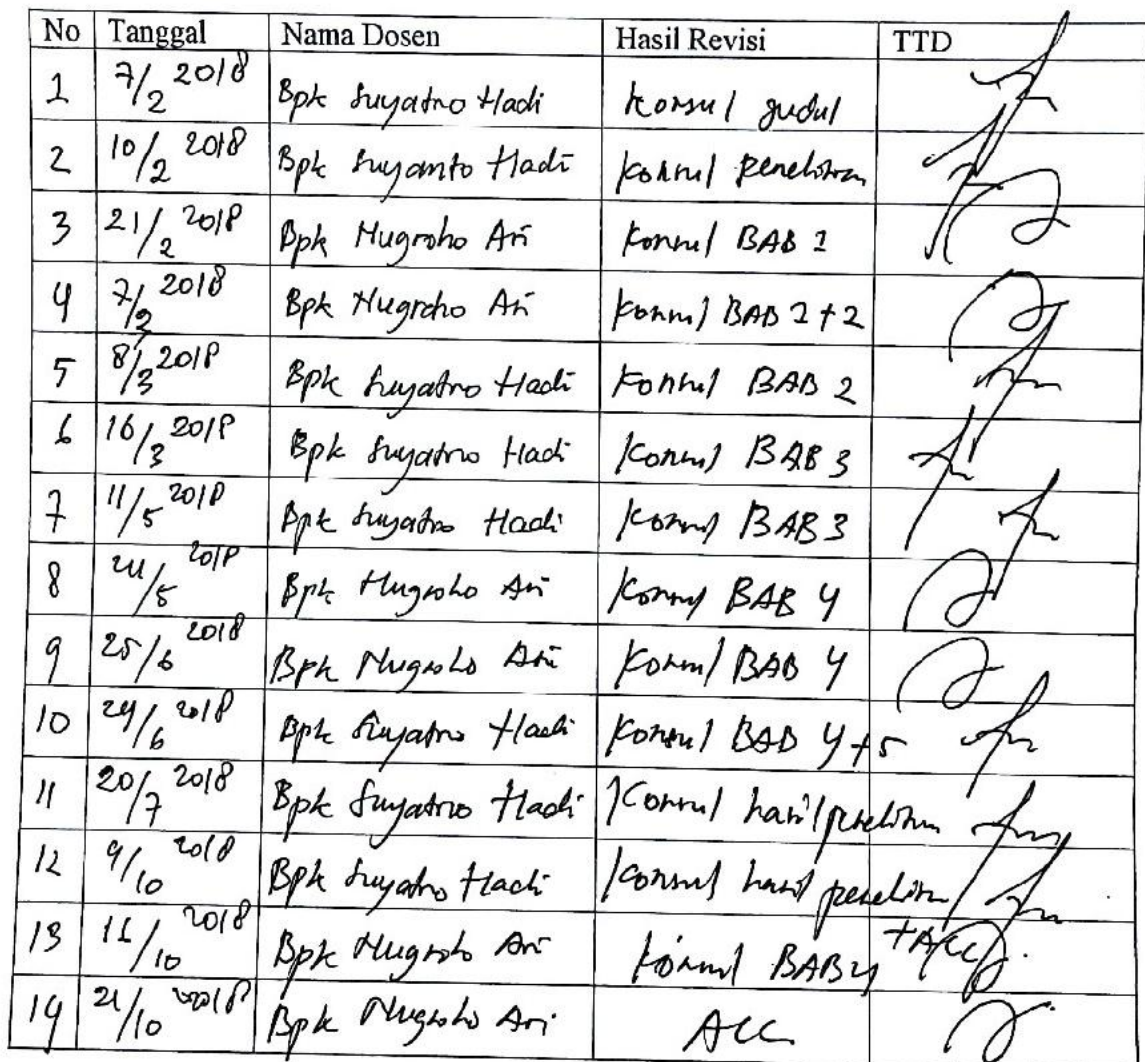 No Tanggal Nama Dosen Hasil Revisi TTD
1 7/2 2018 Bpk Suyatno Hadi Konsul judul
2 10/2 2018 Bpk Suyanto Hadi Konsul penelitian
3 21/2 2018 Bpk Nugroho Ari Konsul BAB 1
4 7/2 2018 Bpk Nugroho Ari Konsul BAB 1+2
5 8/3 2018 Bpk Suyatno Hadi Konsul BAB 2
6 16/3 2018 Bpk Suyatno Hadi Konsul BAB 3
7 11/5 2018 Bpk Suyatno Hadi Konsul BAB 3
8 /5 2018 Bpk Nugroho Ari Konsul BAB 4
9 25/6 2018 Bpk Nugroho Ari Konsul BAB 4
10 29/6 2018 Bpk Suyatno Hadi Konsul BAB 4+5
11 20/7 2018 Bpk Suyatno Hadi Konsul hasil penelitian
12 9/10 2018 Bpk Suyatno Hadi Konsul hasil penelitian
+ACC
13 /10 2018 Bpk Nugroho Ari Konsul BAB 4
14 /10 2018 Bpk Nugroho Ari ACC